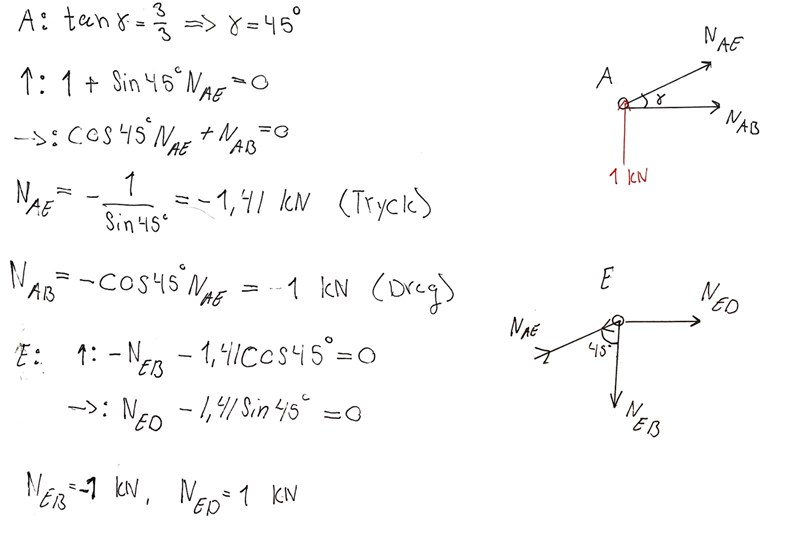 A: tan γ = 3/3 => γ = 45°
↑: 1 + Sin45° N_AE = 0
->: COS45° N_AE + N_AB = 0
N_AE = - 1/Sin45° = -1,41 kN (Tryck)
N_AB = -COS45° N_AE = -1 kN (Drag)
E: ↑: -N_EB - 1,41COS45° = 0
->: N_ED - 1,41Sin45° = 0
N_EB = -1 kN, N_ED = 1 kN
N_AE
A
γ
N_AB
1 kN
E
N_ED
N_AE
45°
N_EB